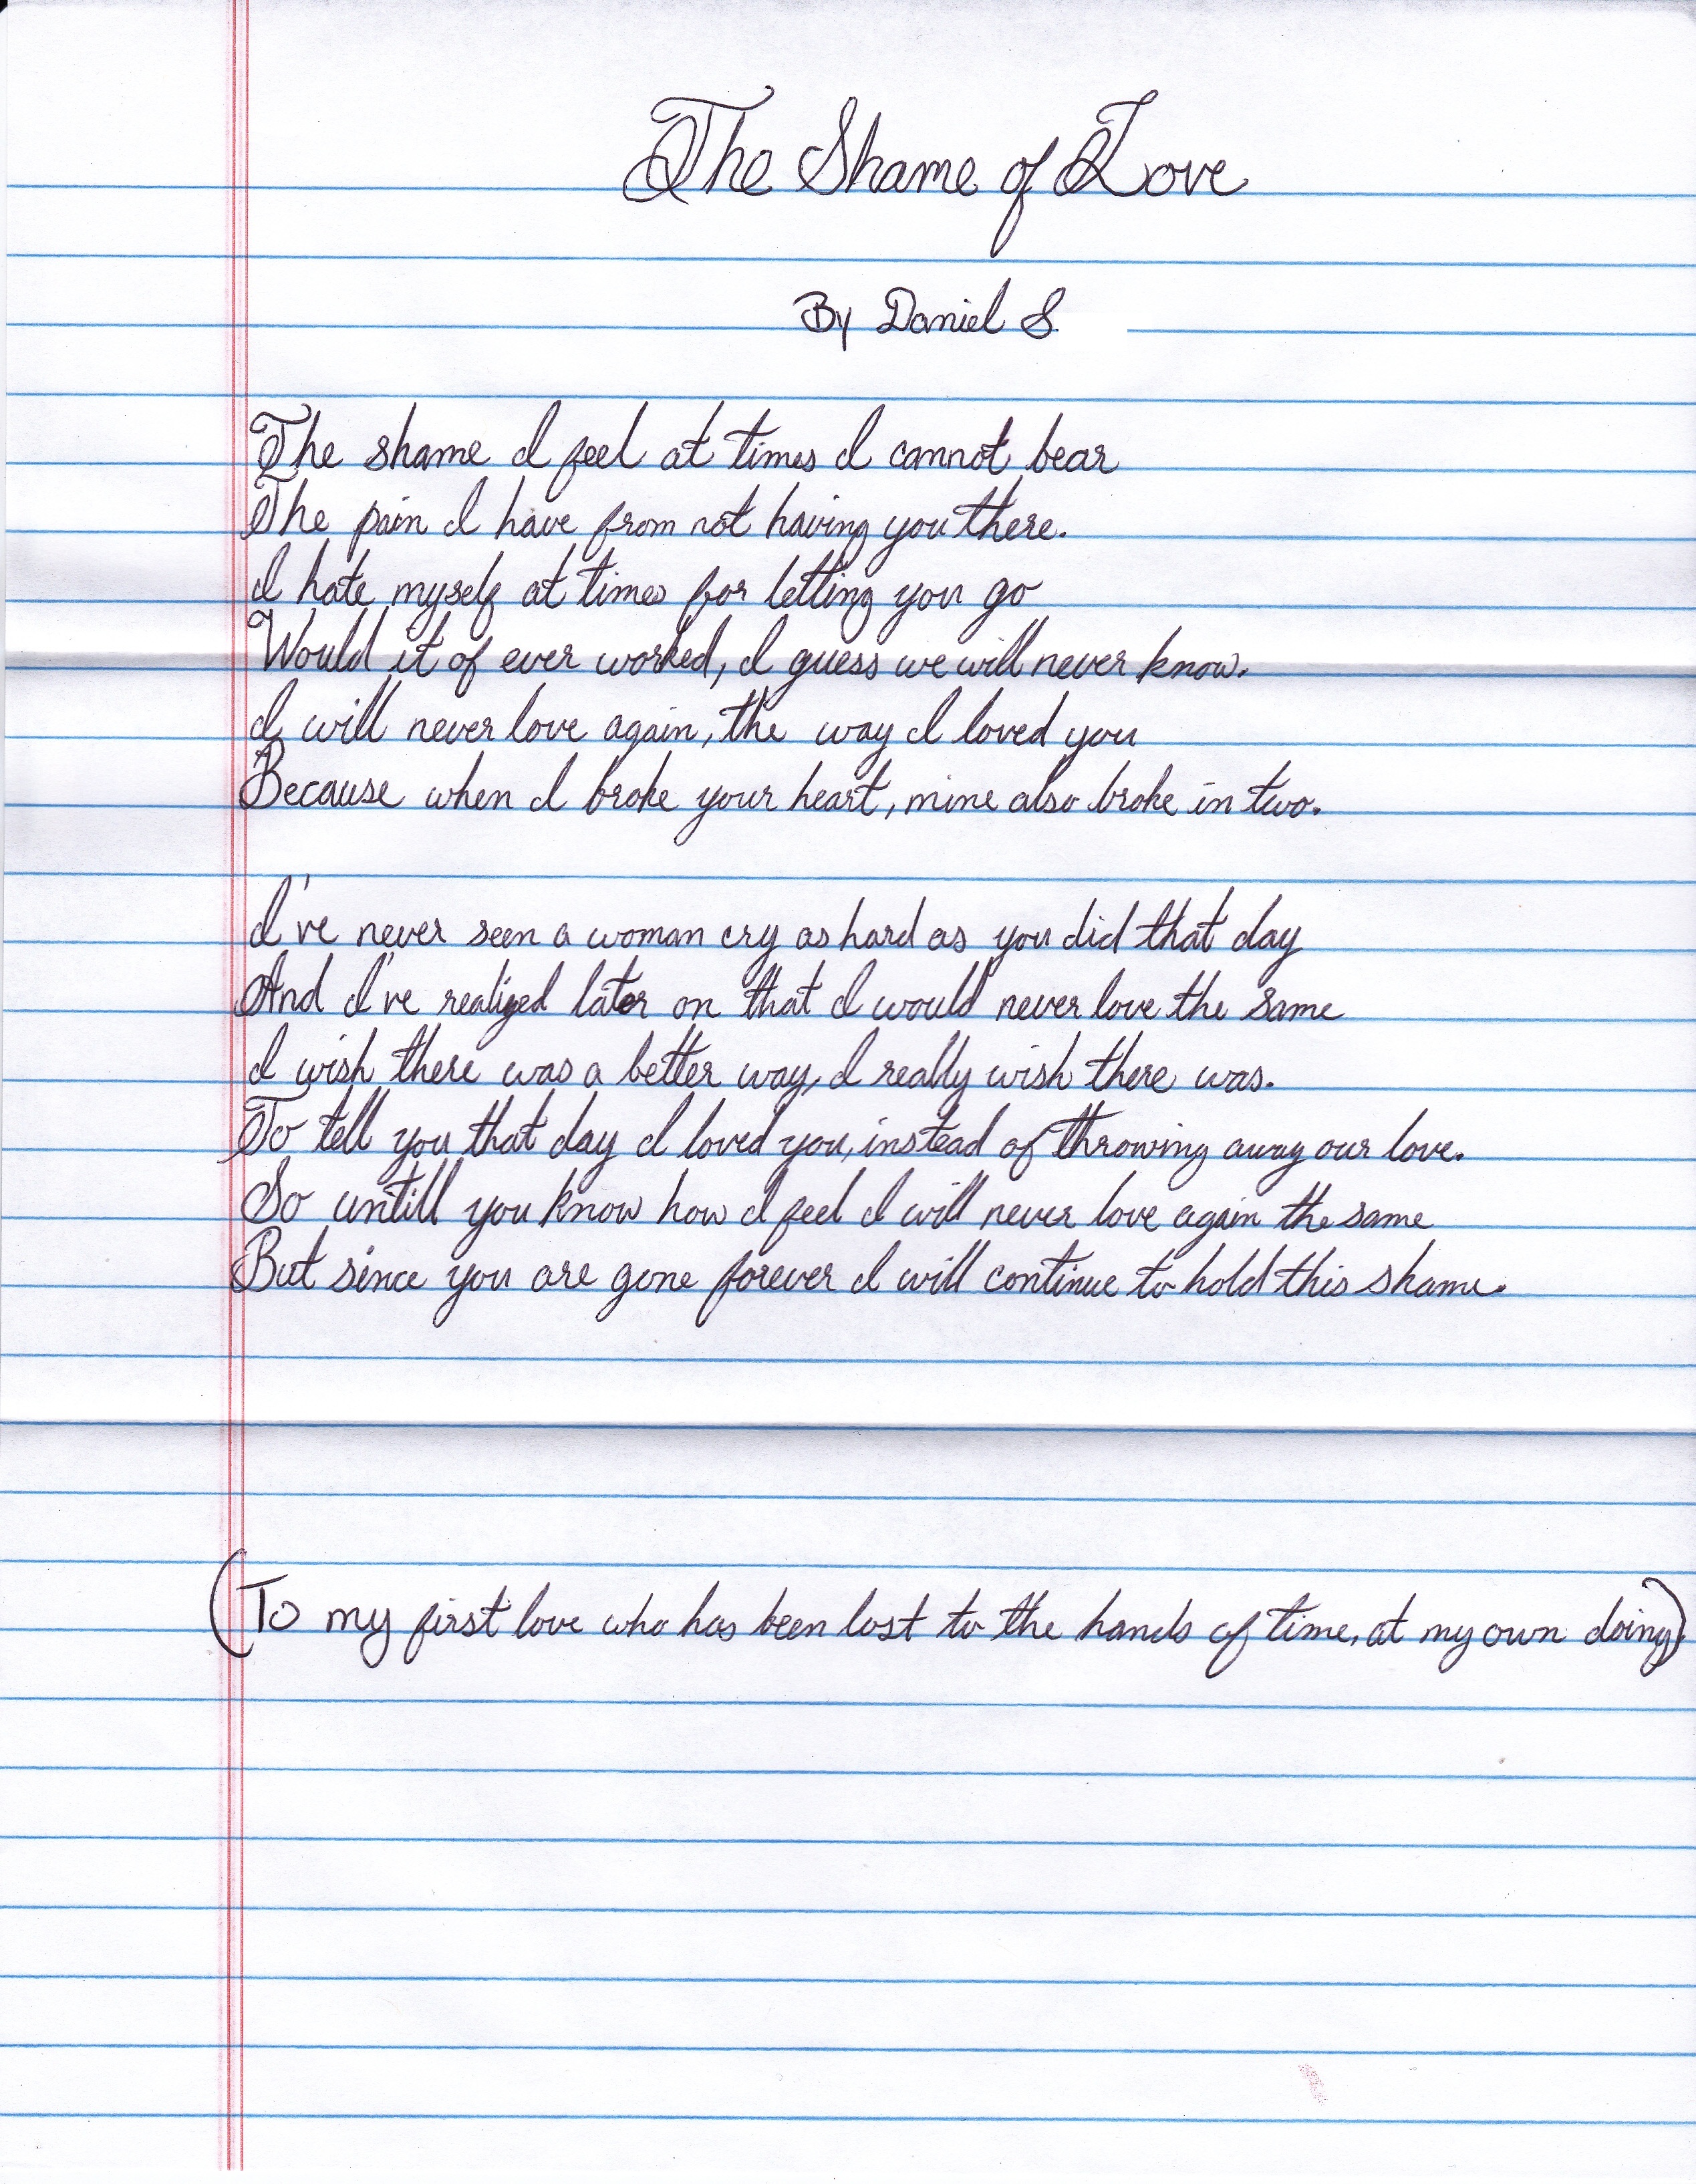 The Shame of Love
By Daniel S.
The shame I feel at times I cannot bear
The pain I have from not having you there.
I hate myself at times for letting you go
Would it of ever worked, I guess we will never know.
I will never love again, the way I loved you
Because when I broke your heart, mine also broke in two.
I've never seen a woman cry as hard as you did that day
And I've realized later on that I would never love the same
I wish there was a better way, I really wish there was.
To tell you that day I loved you, instead of throwing away our love.
So untill you know how I feel I will never love again the same
But since you are gone forever I will continue to hold this shame.
(To my first love who has been lost to the hands of time, at my own doing)